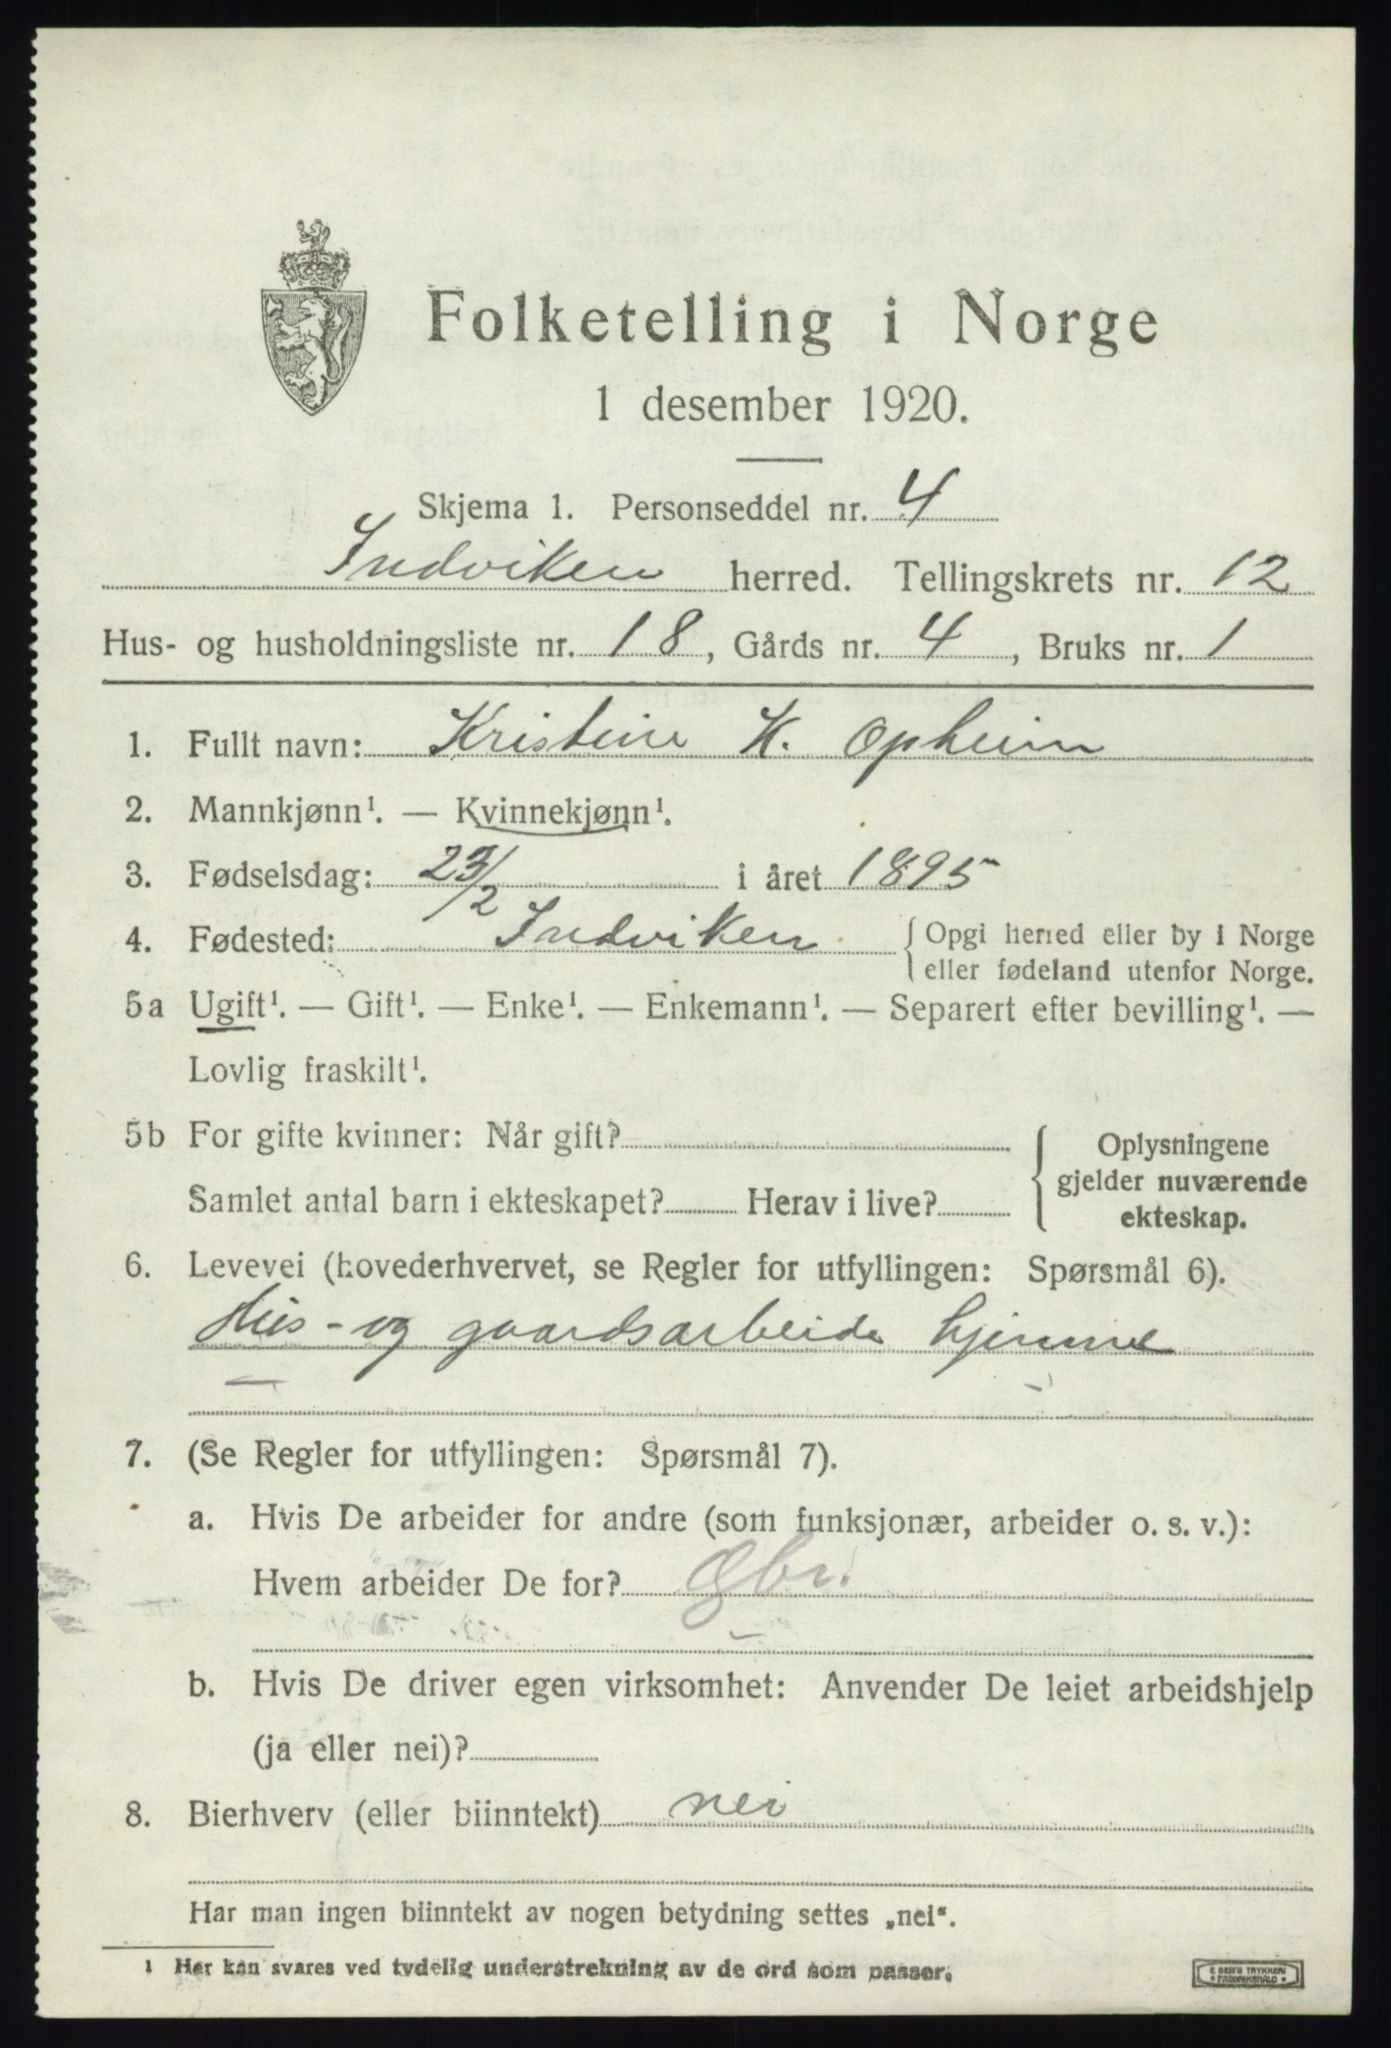 Folketelling i Norge
1 desember 1920.
Skjema 1. Personseddel nr. 4
Indviken herred. Tellingskrets nr. 12
Hus- og husholdningsliste nr. 18, Gårds nr. 4, Bruks nr. 1
1. Fullt navn: Kristine K. Opheim
2. Mannkjønn¹. — Kvinnekjønn¹.
3. Fødselsdag: 23/2 i året 1895
4. Fødested: Indviken { Opgi herred eller by i Norge
eller fødeland utenfor Norge.
5a Ugift¹. — Gift¹. — Enke¹. — Enkemann¹. — Separert efter bevilling¹. —
Lovlig fraskilt¹.
5b For gifte kvinner: Når gift? { Oplysningene
gjelder nuværende
Samlet antal barn i ekteskapet? Herav i live?
ekteskap.
6. Levevei (hovederhvervet, se Regler for utfyllingen: Spørsmål 6).
Hus- og gaardsarbeide hjemme
7. (Se Regler for utfyllingen: Spørsmål 7).
a. Hvis De arbeider for andre (som funksjonær, arbeider o. s. v.):
Hvem arbeider De for? Gbr.
b. Hvis De driver egen virksomhet: Anvender De leiet arbeidshjelp
(ja eller nei)?
8. Bierhverv (eller biinntekt) nei
Har man ingen biinntekt av nogen betydning settes „nei“.
1 Her kan svares ved tydelig understrekning av de ord som passer.